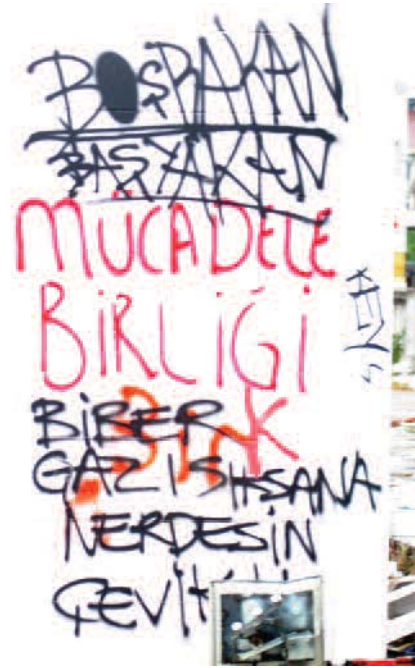 BOŞRAKAN
BAŞYAKAN
MÜCADELE
BİRLİĞİ
BİBER
GAZI SIKSANA
NERDESİN